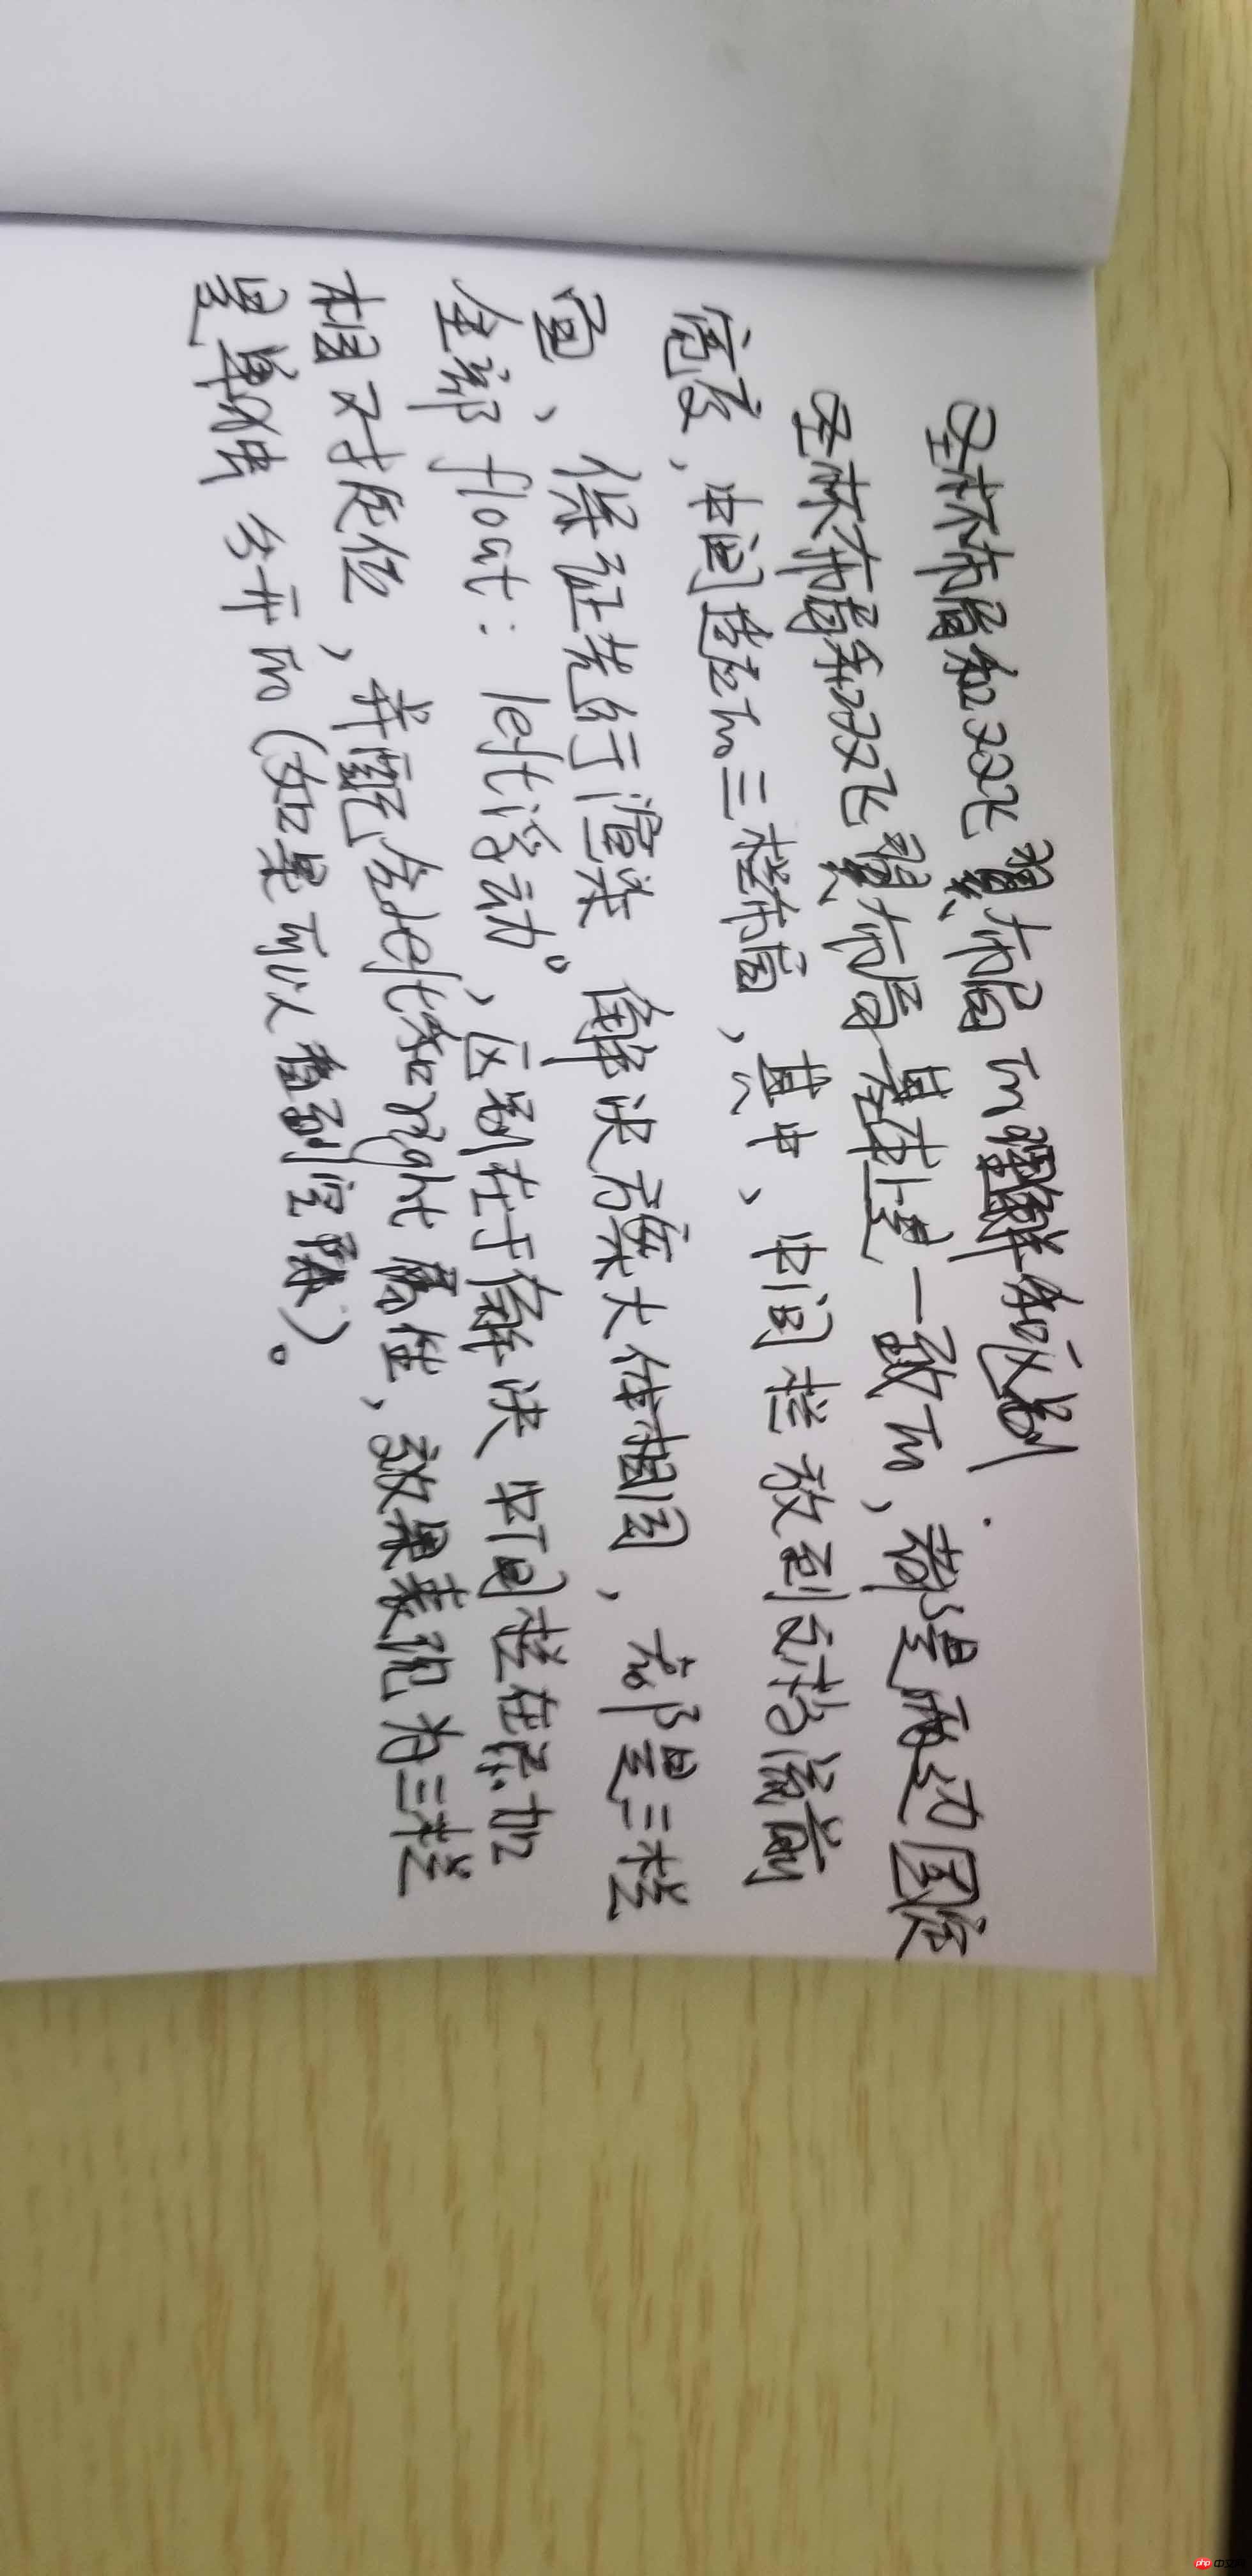 圣杯布局和双飞翼布局的理解和区别.
圣杯布局和双飞翼布局基本上是一致的，都是两边固定
宽度，中间自适应的三栏布局，其中、中间栏放到文档流前
面、保证先行渲染 解决方案大体相同，都是三栏
全部 float：left浮动。，区别在于解决 中间栏在添加
相对定位，并配合left和right属性，效果表现为三栏
是单独分开的(如果可以看到空隙)。
php 中文网